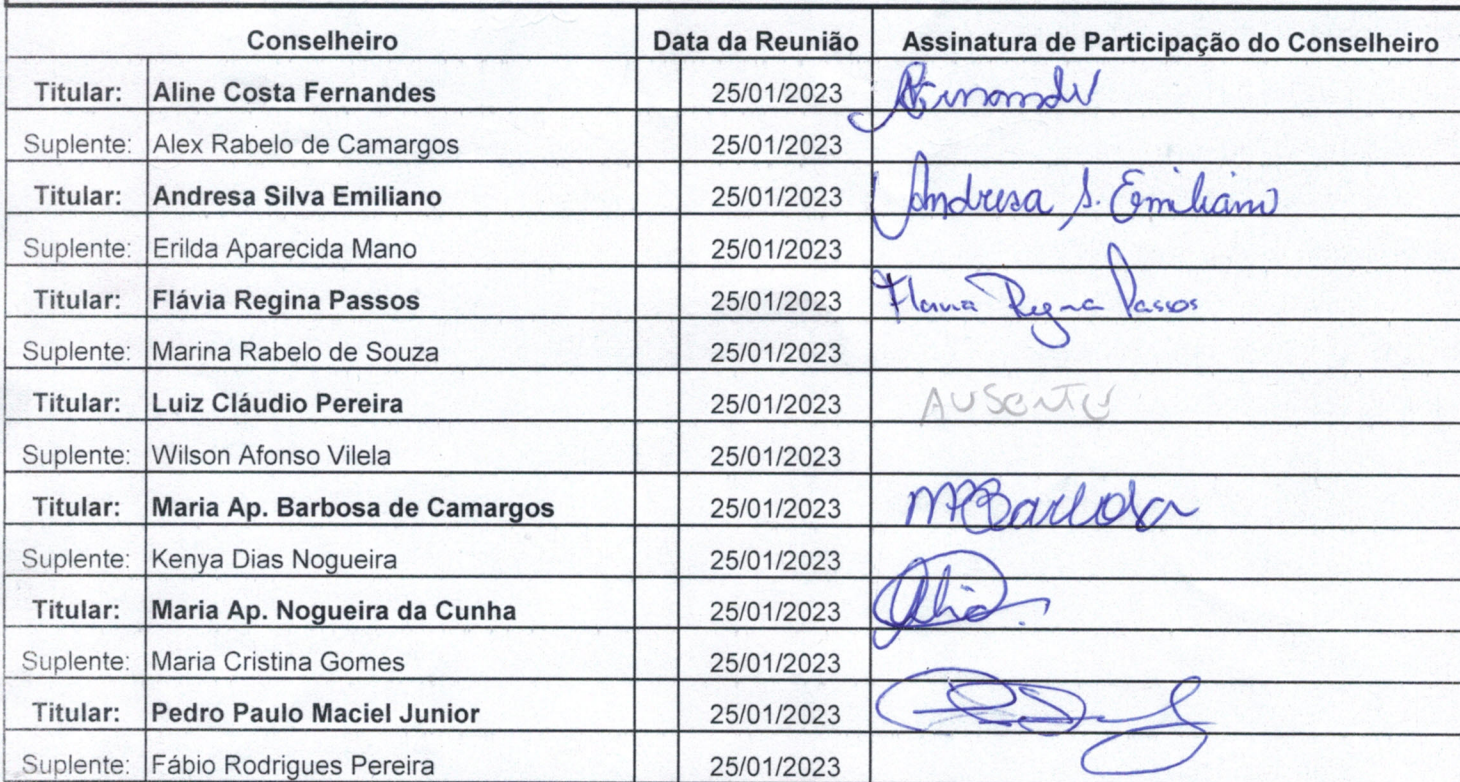 Conselheiro Data da Reunião Assinatura de Participação do Conselheiro
Titular: Aline Costa Fernandes 25/01/2023
Suplente: Alex Rabelo de Camargos 25/01/2023
Titular: Andresa Silva Emiliano 25/01/2023 Andresa S. Emiliano
Suplente: Erilda Aparecida Mano 25/01/2023
Titular: Flávia Regina Passos 25/01/2023 Flavia Regina Passos
Suplente: Marina Rabelo de Souza 25/01/2023
Titular: Luiz Cláudio Pereira 25/01/2023 AUSENTE
Suplente: Wilson Afonso Vilela 25/01/2023
Titular: Maria Ap. Barbosa de Camargos 25/01/2023 MABarbosa
Suplente: Kenya Dias Nogueira 25/01/2023
Titular: Maria Ap. Nogueira da Cunha 25/01/2023
Suplente: Maria Cristina Gomes 25/01/2023
Titular: Pedro Paulo Maciel Junior 25/01/2023
Suplente: Fábio Rodrigues Pereira 25/01/2023